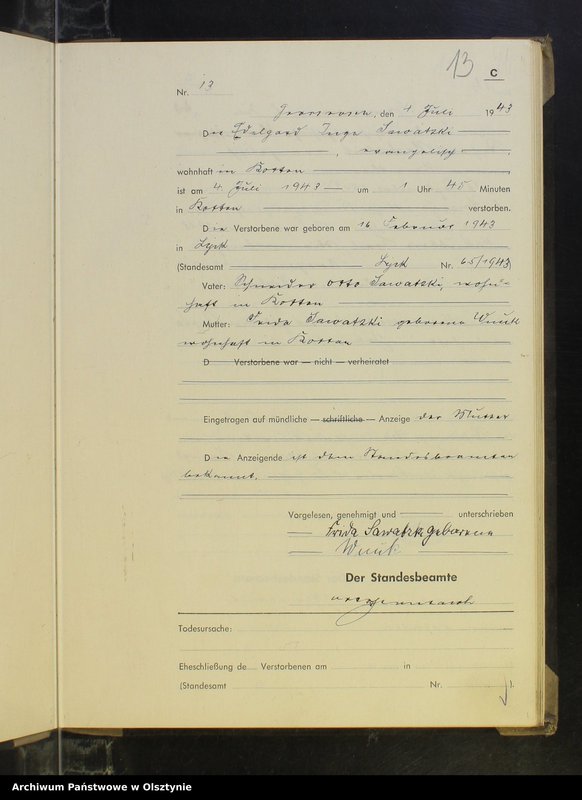 13
C
Nr. 13
, den Juli 1943
Die Edelgard Inge Sawatzki
, evangelisch
wohnhaft in Kotten
ist am 4. Juli 1943 um 1 Uhr 45 Minuten
in Kotten verstorben.
Die Verstorbene war geboren am 16 Februar 1943
in Lyck
(Standesamt Lyck Nr. 65/1943)
Vater: Schneider Otto Sawatzki, wohn-
haft in Kotten
Mutter: Frida Sawatzki geborene
wohnhaft in Kotten
D Verstorbene war — nicht — verheiratet
Eingetragen auf mündliche — schriftliche — Anzeige der Mutter
Die Anzeigende ist dem Standesbeamten
bekannt.
Vorgelesen, genehmigt und unterschrieben
Frida Sawatzki geborene
Der Standesbeamte
Todesursache:
Eheschließung de Verstorbenen am in
(Standesamt Nr. ).
Archiwum Państwowe w Olsztynie